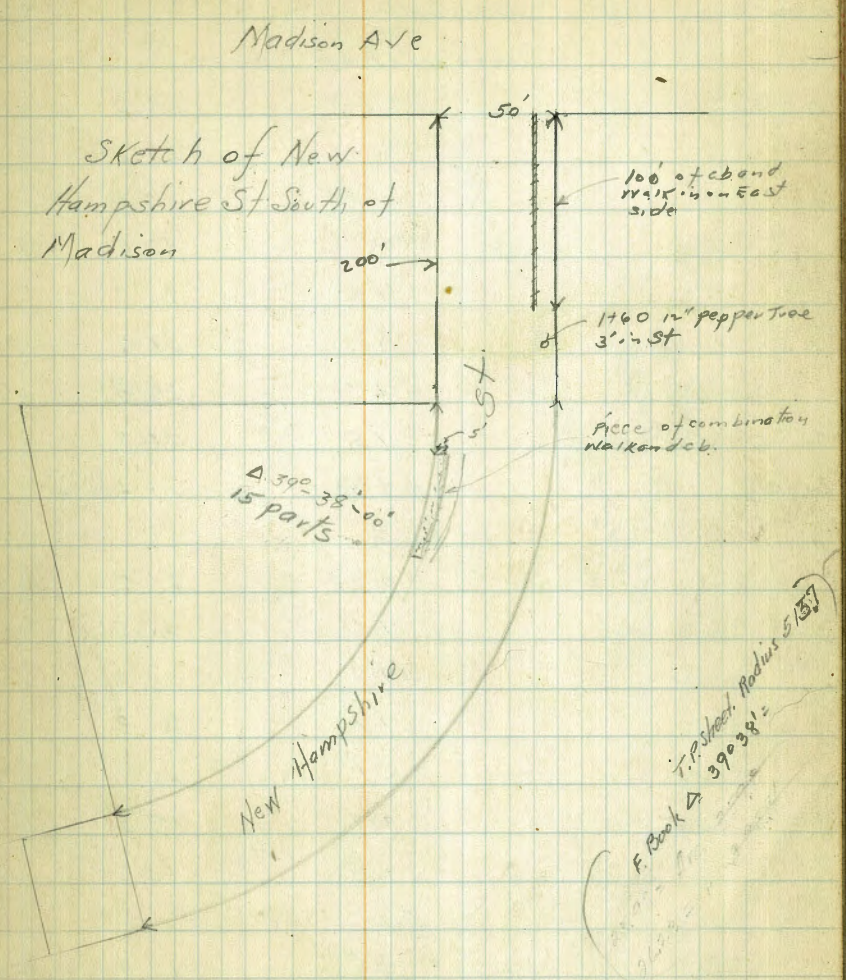 Madison Ave
50'
Sketch of New
Hampshire St South of
Madison
100' of cb and
Walk in on East
side
200'
1+60 12" pepper Tree
3' in St
St.
5'
Piece of combination
Walk and cb.
Δ 39°-38'-00"
15 parts
New Hampshire
T.P. sheet. Radius
F. Book Δ 39°38'=